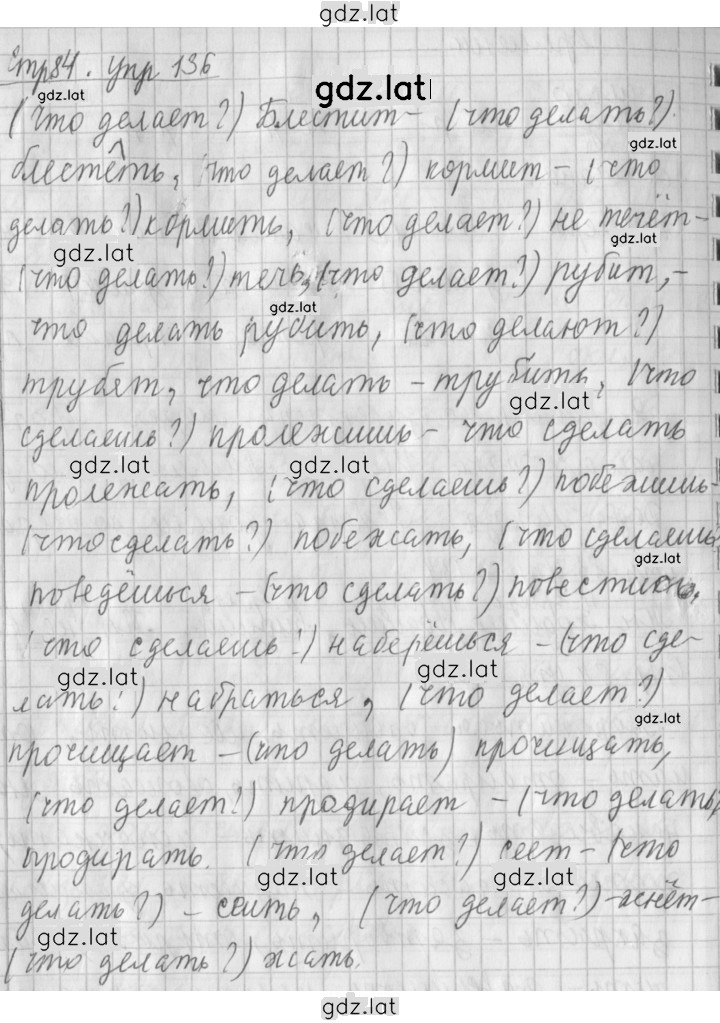 gdz.lat
Стр84. упр 136
gdz.lat
gdz.lat
(Что делает?) Блестит - (что делать?)
gdz.lat
блестеть, (что делает?) кормит - (что
делать?) кормить, (что делает?) не течёт -
gdz.lat
gdz.lat
(что делать?) течь, (что делает?) рубит, -
gdz.lat
что делать рубить, (что делают?)
трубят, что делать - трубить, (что
gdz.lat
сделаешь?) пролежишь - что сделать
gdz.lat gdz.lat
пролежать, (что сделаешь?) побежишь -
(что сделать?) побежать, (что сделаешь
gdz.lat
поведёшься - (что сделать?) повестись,
(что сделаешь?) наберёшься - (что сде-
gdz.lat gdz.lat
лать?) набраться, (что делает?)
gdz.lat
прочищает - (что делать) прочищать,
(что делает?) продирает - (что делать,
продирать. (что делает?) сеет - (что
gdz.lat gdz.lat
делать?) - сеить, (что делает?) - жнёт -
gdz.lat
(что делать?) жать.
gdz.lat